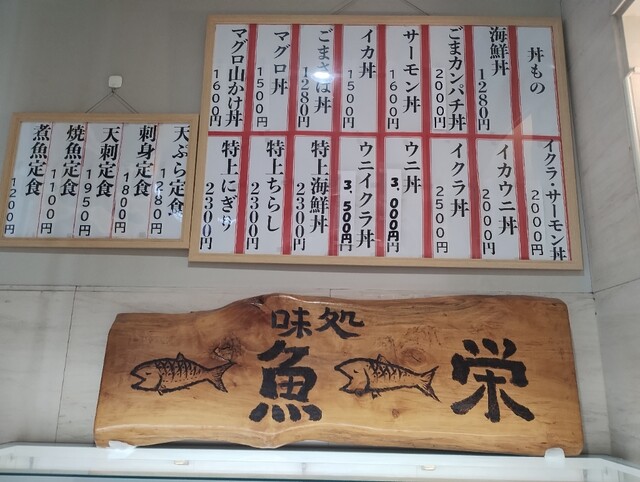 丼もの
海鮮丼 1280円
ごまカンパチ丼 2000円
サーモン丼 1600円
イカ丼 1500円
ごまさば丼 1280円
マグロ丼 1500円
マグロ山かけ丼 1600円
イクラ・サーモン丼 2000円
イカウニ丼 2000円
イクラ丼 2500円
ウニ丼 3,000円
ウニイクラ丼 3,500円
特上海鮮丼 2300円
特上ちらし 2300円
特上にぎり 2300円
天ぷら定食 1280円
刺身定食 1800円
天刺定食 1950円
焼魚定食 1100円
煮魚定食 1200円
味処
魚栄